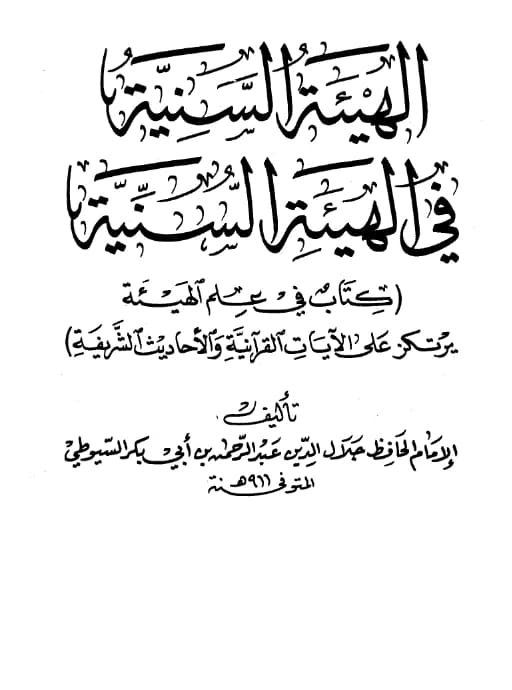 الهَيْئَةُ السَّنِيَّةُ
في الهَيئَةِ السُّنِّيَّةِ
(كِتَابٌ في عِلم الهَيْئَة
يرتكز على الآيَاتِ القرآنيَّةِ وَالأحاديثِ الشَّريفَةِ)
تأليف
الإمَام الحَافِظ جَلال الدِّين عَبْد الرَّحمٰن بن أَبي بَكر السّيوطي
المتوفى ٩١١ هـنة